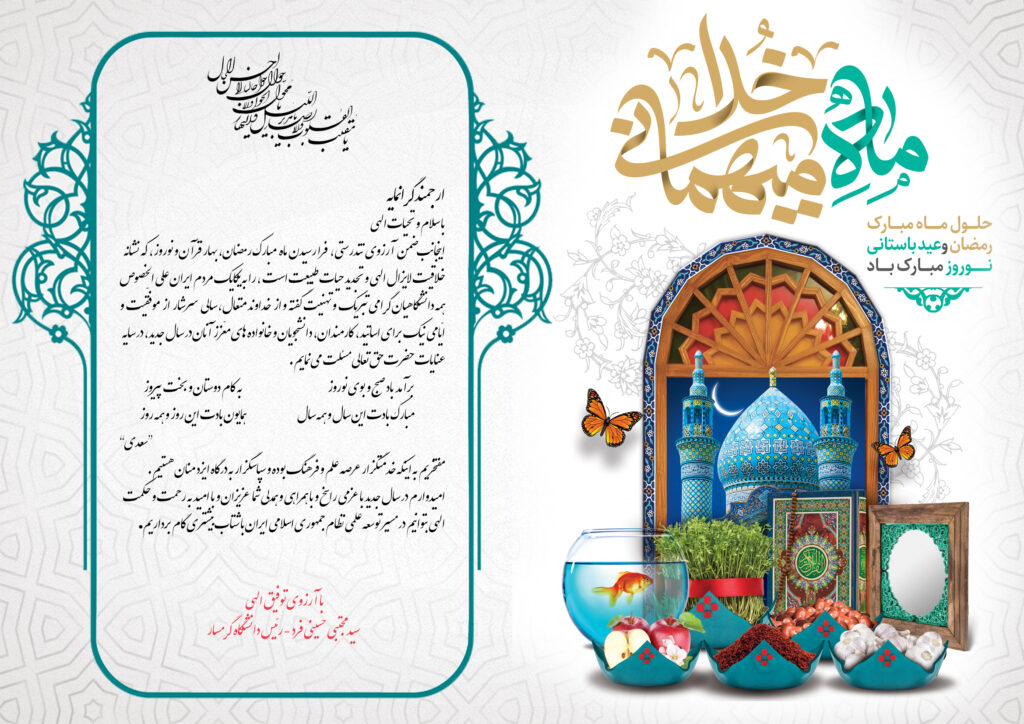 ماه میهمانی خدا
حلول ماه مبارک
رمضان و عید باستانی
نوروز مبارک باد
یا مقلب القلوب و الابصار یا مدبر اللیل و النهار
یا محول الحول و الاحوال حول حالنا الی احسن الحال
ارجمند گرانمایه
با سلام و تحیات الهی
اینجانب ضمن آرزوی تندرستی، فرا رسیدن ماه مبارک رمضان، بهار قرآن و نوروز، که نشانه
خلاقیت لایزال الهی و تجدید حیات طبیعت است، را به یکایک مردم ایران علی الخصوص
همه دانشگاهیان گرامی تبریک و تهنیت گفته و از خداوند متعال، سالی سرشار از موفقیت و
ایامی نیک برای اساتید، کارمندان، دانشجویان و خانواده های معزز آنان در سال جدید، در سایه
عنایات حضرت حق تعالی مسئلت می نمایم.
برآمد باد صبح و بوی نوروز به کام دوستان و بخت پیروز
مبارک بادت این سال و همه سال همایون بادت این روز و همه روز
"سعدی"
مفتخریم به اینکه خدمتگزار عرصه علم و فرهنگ بوده و سپاسگزار به درگاه ایزد منان هستیم.
امیدوارم در سال جدید با عزمی راسخ و با همراهی و همدلی شما عزیزان و با امید به رحمت و حکمت
الهی بتوانیم در مسیر توسعه علمی نظام جمهوری اسلامی ایران با شتاب بیشتری گام برداریم.
با آرزوی توفیق الهی
سید مجتبی حسینی فرد - رئیس دانشگاه گرمسار